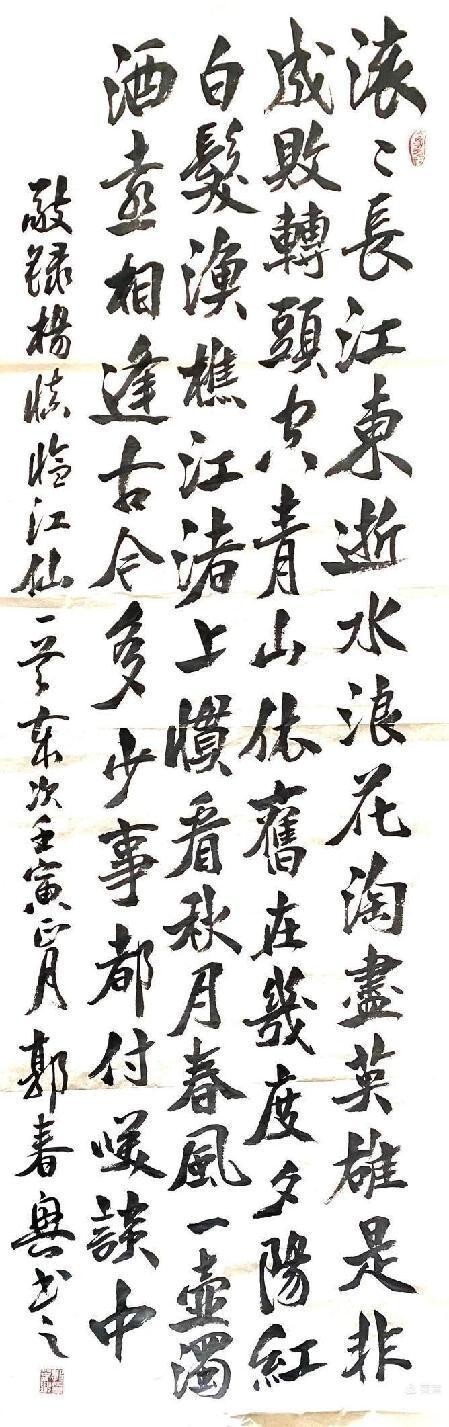 滚〻長江東逝水浪花淘盡英雄是非
成敗轉頭空青山依舊在幾度夕陽紅
白髮漁樵江渚上慣看秋月春風一壺濁
酒喜相逢古今多少事都付咲談中
敬録楊慎臨江仙一首歲次壬寅正月郭春興书之